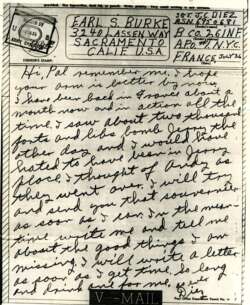 EARL S. BURKE
3240 LASSEN WAY
SACRAMENTO
CALIF U.S.A.
SGT. J.C. DIEZ
B CO. 26 INF
APO #1 N.Y.C.
FRANCE JULY 26
Hi, Pal remember me, I hope
your arm is better by now
I have been back in France about a
month now and in action all the
time, I saw about two thousand
forts and libs bomb Jerry the
other day and I would have
hated to have been in Jerry
place, I thought of Andy as
they went over, I will try
and send you that souvenier
as soon as I can, In the mean-
time write me and tell me
about the good things I am
missing, I will write a letter
as soon as I get time, So long
and drink one for me,
Diez
V-MAIL